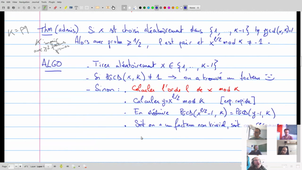 Thm (admis) Si x est choisi aléatoirement dans {2, .., K-1} tq. pgcd(x, K)=1
Alors avec proba ≥ 1/2, l est pair et x^{l/2} mod K ≠ -1.
ALGO
. Tirer aléatoirement x ∈ {2, ..., K-1}
. Si PGCD(x, K) ≠ 1 → on a trouvé un facteur
. Sinon : Calculer l'ordre l de x mod K
. Calculer y = x^{l/2} mod K [exp. rapide]
. En déduire PGCD(x^{l/2}-1, K) = PGCD(y-1, K)
. Soit on a un facteur non trivial, soit